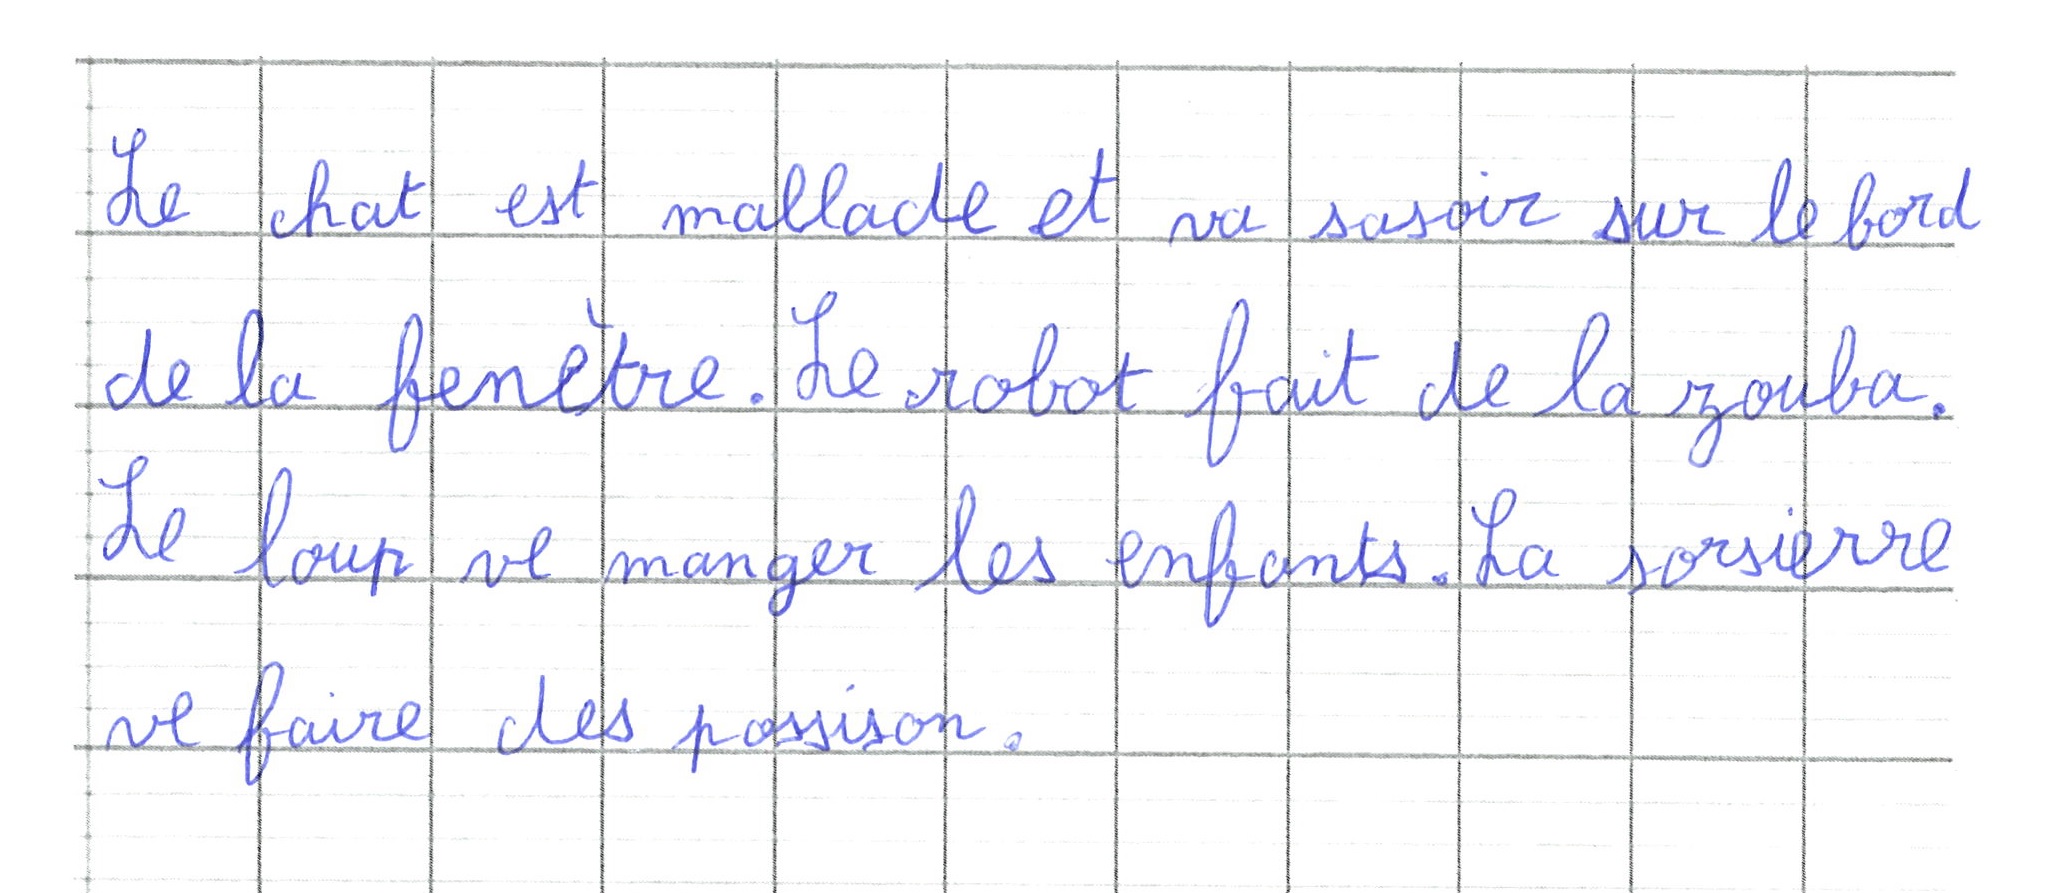 Le chat est mallade et va sasoir sur le bord
de la fenètre. Le robot fait de la zouba.
Le loup ve manger les enfants. La sorsierre
ve faire des possison.